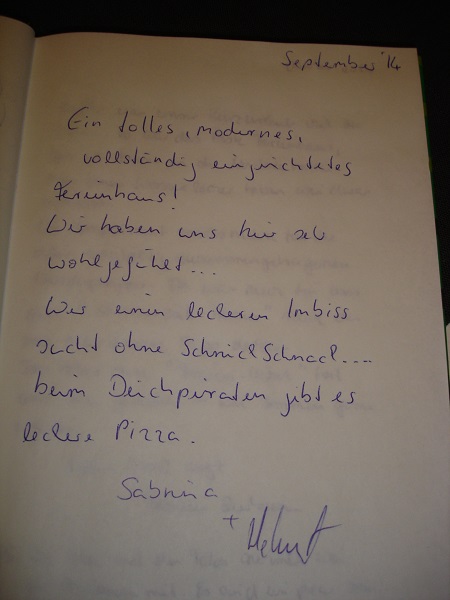 September '14
Ein tolles, modernes,
vollständig eingerichtetes
Ferienhaus!
Wir haben uns hier sehr
wohlgefühlt...
Wer einen leckeren Imbiss
sucht ohne SchnickSchnack....
beim Deichpiraten gibt es
leckere Pizza.
Sabrina
+ Helmut